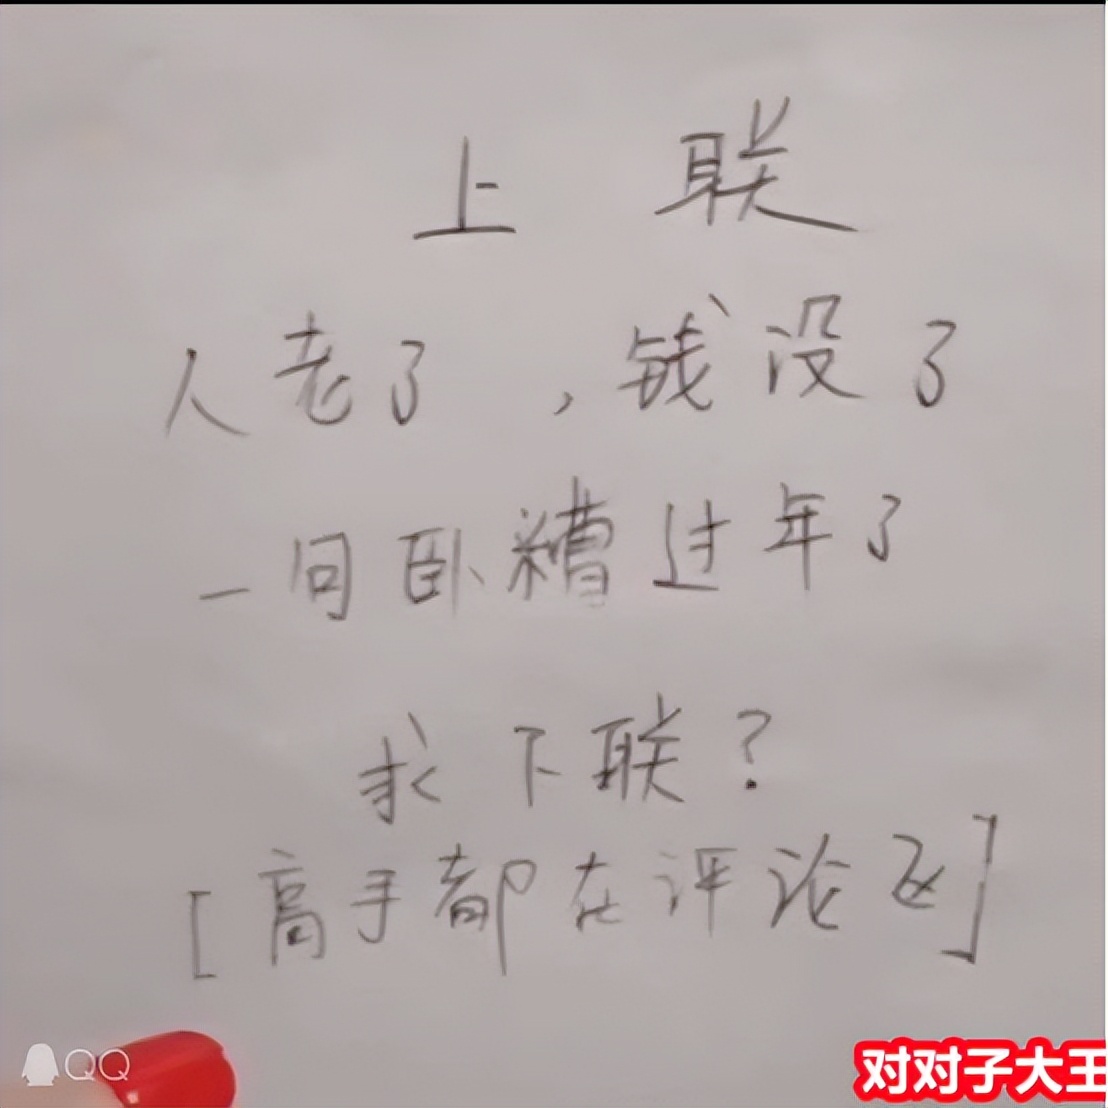 上 联
人老了，钱没了
一问卧糟过年了
求下联？
[高手都在评论区]
QQ
对对子大王